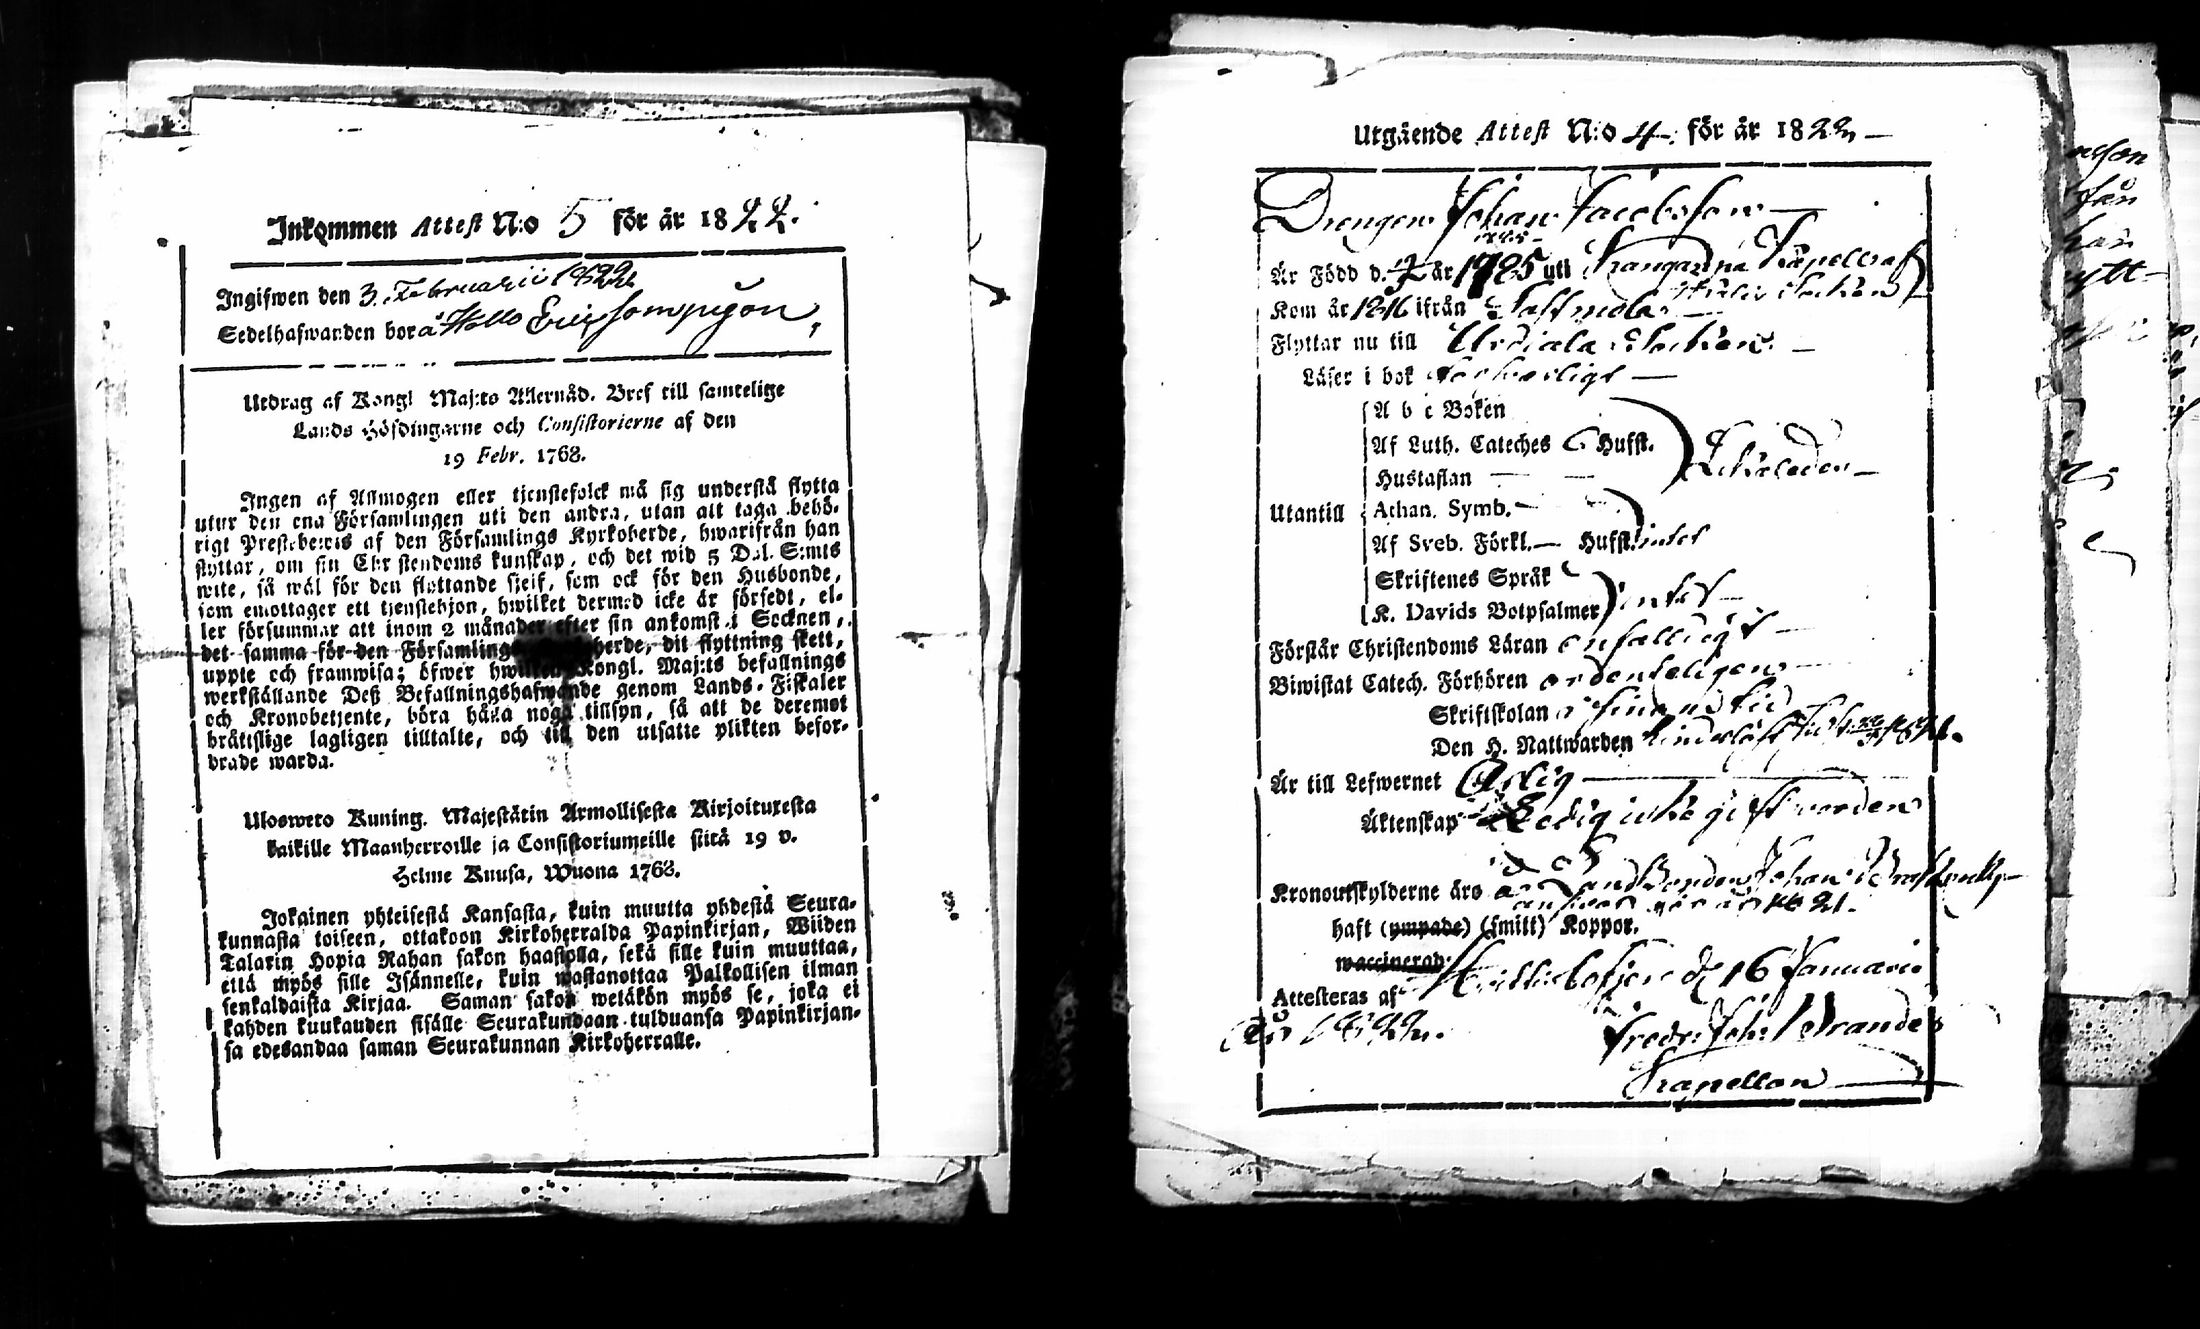 Inkommen Attest N:o 5 för år 1822.
Ingifwen den 3. Februarii 1822
Sedelhafwanden bor å
Utdrag af Kongl. Maj:ts Allernåd. Bref till samtelige
Lands Höfdingarne och Consistorierne af den
19 Febr. 1768.
Ingen af Allmogen eller tjenstefolck må sig understå flytta
utur den ena Församlingen uti den andra, utan att taga behö-
rigt Prestebewis af den Församlings Kyrkoherde, hwarifrån han
flyttar, om sin Christendoms kunskap, och det wid 5 Dal. S:mts
wite, så wäl för den flyttande sjelf, som ock för den Husbonde,
som emottager ett tjenstehjon, hwilket dermed icke är försedt, el-
ler försummar att inom 2 månader efter sin ankomst i Socknen,
det samma för den Församlings herde, dit flyttning skett,
uppte och framwisa; öfwer hwilken Kongl. Maj:ts befallnings
werkställande Deß Befallningshafwande genom Lands-Fiskaler
och Kronobetjente, böra hålla noga tillsyn, så att de deremot
bråttslige lagligen tilltalte, och till den utsatte plikten befor-
drade warda.
Uloswető Kuning. Majestätin Armollisesta Kirjoituxesta
kaikille Maanherroille ja Consistoriumeille siitä 19 p.
Helme Kuusa, Wuona 1768.
Jokainen yhteisestä Kansasta, kuin muutta yhdestä Seura-
kunnasta toiseen, ottakoon Kirkoherralda Papinkirjan, Wiiden
Talarin Hopia Rahan sakon haastolla, sekä sille kuin muuttaa,
että myös sille Isännelle, kuin wastanottaa Palkollisen ilman
senkaldaista Kirjaa. Saman sakon wetäkön myös se, joka ei
kahden kuukauden sisälle Seurakundaan tulduansa Papinkirjan-
sa edesandaa saman Seurakunnan Kirkoherralle.
Utgående Attest N:o 4. för år 1822
Drengen Johan Jacobsson
Är Född d. år 1785 uti Kapell af
Kom år 1816 ifrån
Flyttar nu till Urdiala Socken.
Läser i bok försvarligt
A b c Boken
Af Luth. Cateches 6 Hufst.
Hustaflan
Utantill Athan. Symb.
Af Sveb. Förkl. Hufst. intet
Skriftenes Språk
K. Davids Botpsalmer intet
Förstår Christendoms Läran enfalligt
Biwistat Catech. Förhören ordenteligen
Skriftskolan
Den H. Nattwarden
Är till Lefwernet Ärlig
Äktenskap Ledig icke gift vorden
Kronoutskylderne äro Landbonden Johan
ansvar för år 1821.
haft (ympade) (smitt) Koppor.
waccinerad:
Attesteras af d. 16 Januarii
År 1822. Fredr. Joh. Brander
Kapellan